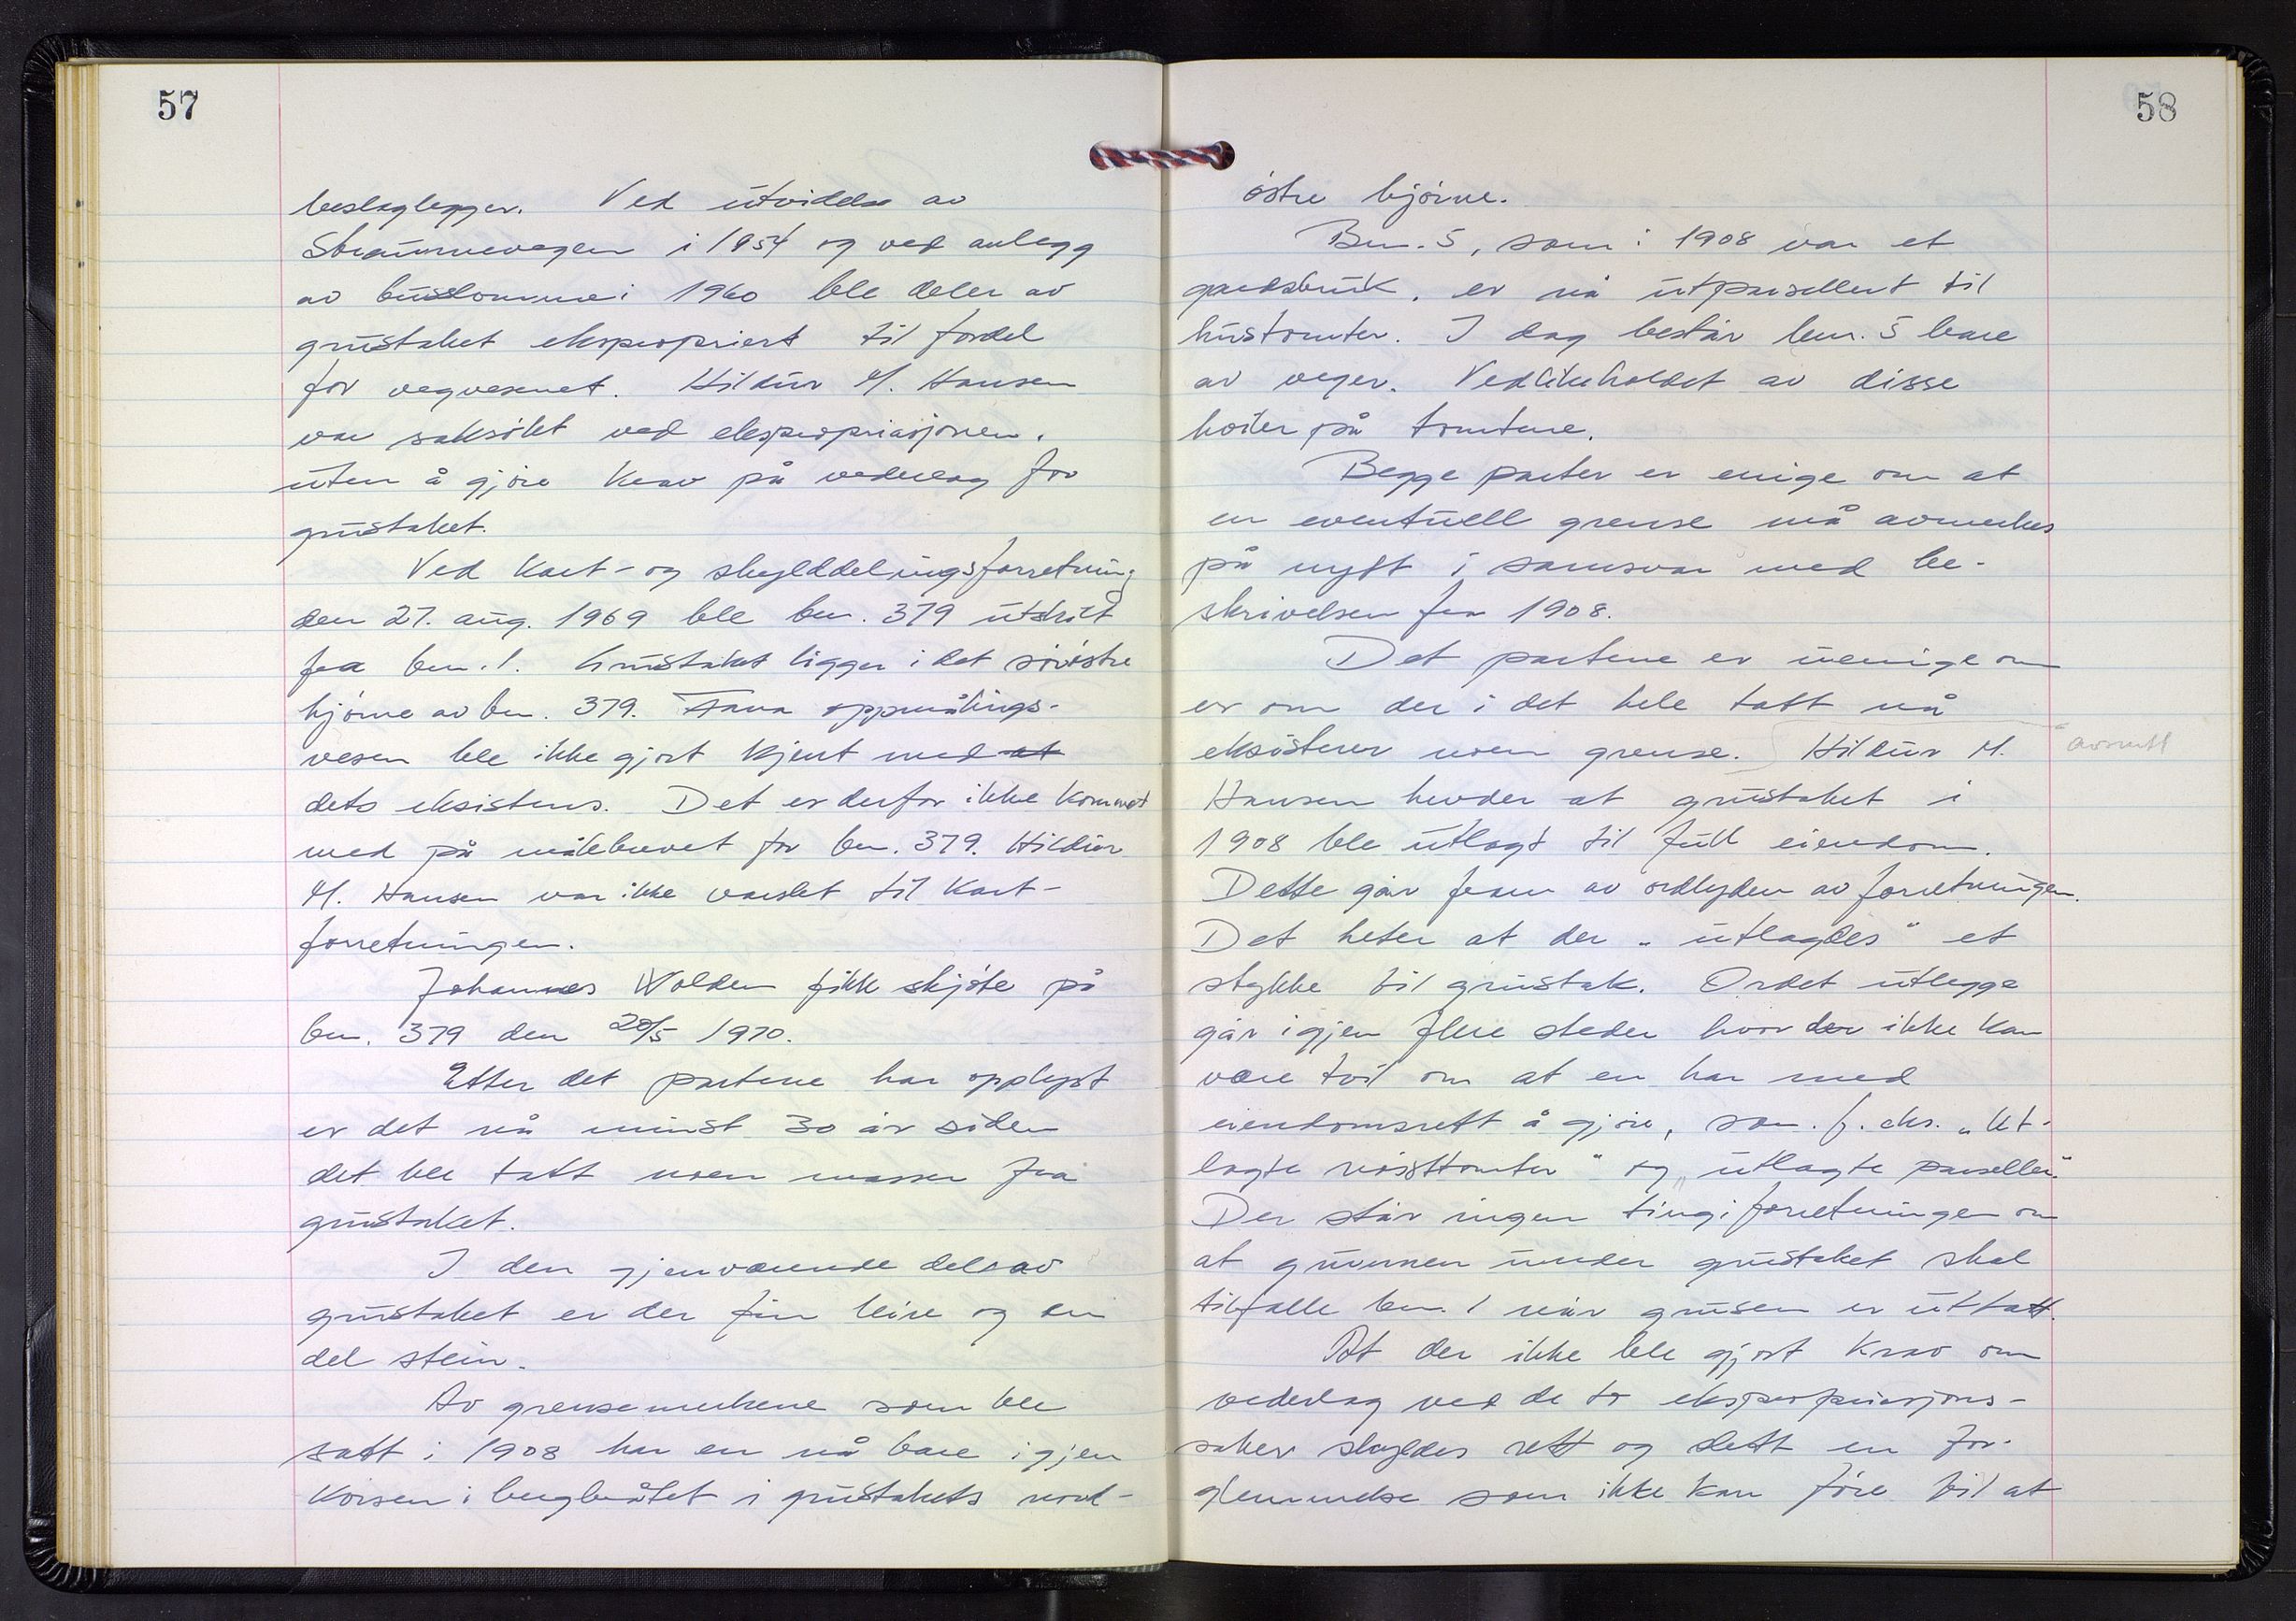 57
beslaglegger. Ved utvidelse av
Straumevegen i 1954 og ved anlegg
av busslomme i 1960 ble deler av
grustaket ekspropriert til fordel
for vegvesenet. Hildur M. Hansen
var saksøkt ved ekspropriasjonen.
uten å gjøre krav på vederlag for
grustaket.
Ved kart- og skylddelingsforretning
den 27. aug. 1969 ble bnr. 379 utskilt
fra bnr. 1. Grustaket ligger i det sørøstre
hjørne av bnr. 379. Fana oppmålings-
vesen ble ikke gjort kjent med at
dets eksistens. Det er derfor ikke kommet
med på målebrevet for bnr. 379. Hildur
M. Hansen var ikke varslet til kart-
forretningen.
Johannes Wolden fikk skjøte på
bnr. 379 den 28/5 1970.
Etter det partene har opplyst
er det nå minst 30 år siden
det ble tatt noen masser fra
grustaket.
I den gjenværende del av
grustaket er der fin leire og en
del stein.
Av grensemerkene som ble
satt i 1908 har en nå bare igjen
korsen i bergknatet i grustakets nord-
58
østre hjørne.
Bnr. 5, som i 1908 var et
gardsbruk, er nå utparsellert til
hustomter. I dag består bnr. 5 bare
av veger. Vedlikeholdet av disse
hviler på tomtene.
Begge parter er enige om at
en eventuell grense må avmerkes
på nytt i samsvar med be-
skrivelsen fra 1908.
Det partene er uenige om
er om der i det hele tatt nå
eksisterer noen grense. Hildur M.
avsnitt
Hansen hevder at grustaket i
1908 ble utlagt til full eiendom.
Dette går fram av ordlyden av forretningen.
Det heter at der "utlagdes" et
stykke til grustak. Ordet utlegge
går igjen flere steder hvor der ikke kan
være tvil om at en har med
eiendomsrett å gjøre, som f. eks. "Ut-
lagte nausttomter" og "utlagte parseller".
Der står ingen ting i forretningen om
at grunnen under grustaket skal
tilfalle bnr. 1 når grusen er uttatt.
At der ikke ble gjort krav om
vederlag ved de to ekspropriasjons-
saker skyldes rett og slett en for-
glemmelse som ikke kan føre til at